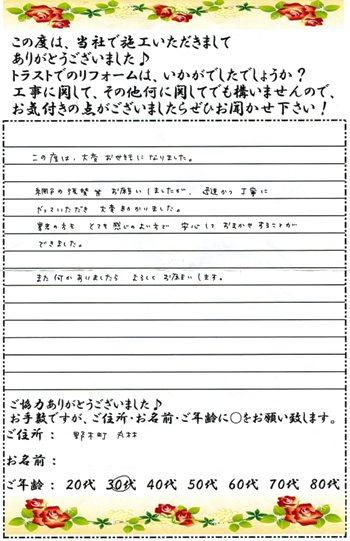 この度は、当社で施工いただきまして
ありがとうございました♪
トラストでのリフォームは、いかがでしたでしょうか？
工事に関して、その他何に関してでも構いませんので、
お気付きの点がございましたらぜひお聞かせ下さい！
この度は、大変お世話になりました。
網戸の張替等お願いしましたが、迅速かつ丁寧に
やっていただき 大変助かりました。
業者の方も とても感じのよい方で 安心して おまかせすることが
できました。
また何かありましたら よろしくお願いします。
ご協力ありがとうございました♪
お手数ですが、ご住所・お名前・ご年齢に○をお願い致します。
ご住所： 野木町 丸林
お名前：
ご年齢： 20代 30代 40代 50代 60代 70代 80代